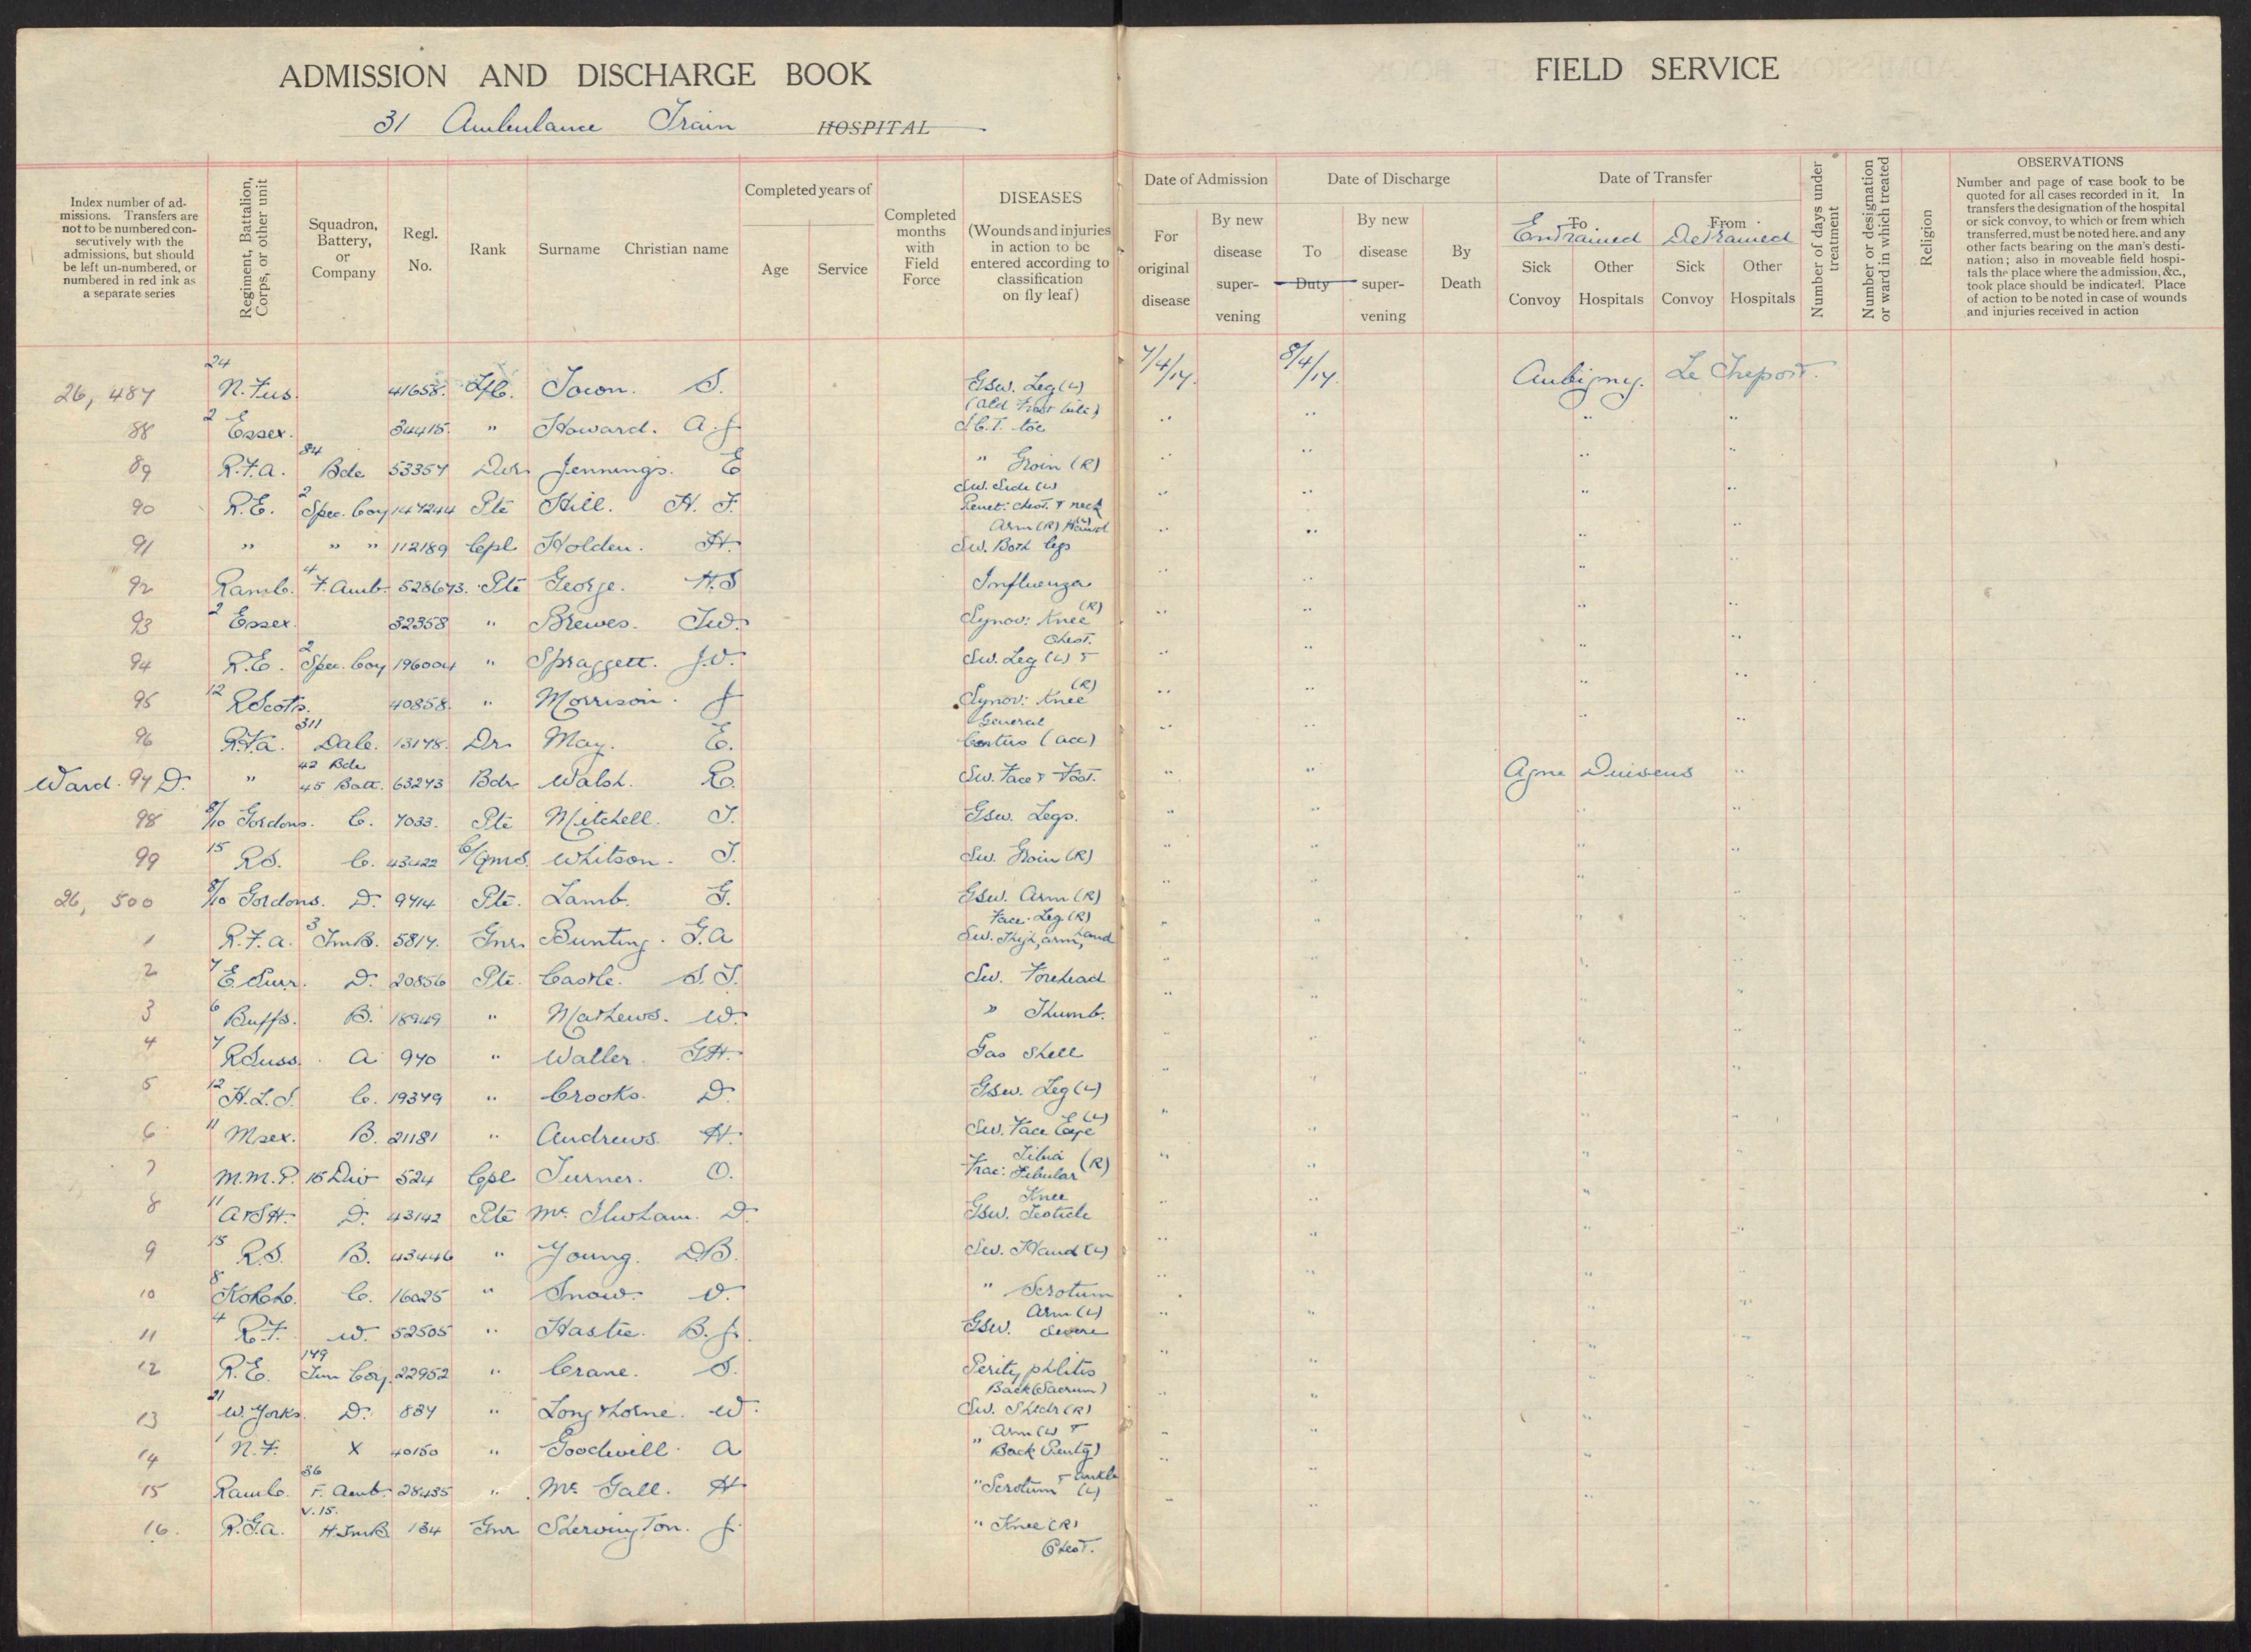 ADMISSION AND DISCHARGE BOOK
31 Ambulance Train HOSPITAL
Index number of ad-
missions. Transfers are
not to be numbered con-
secutively with the
admissions, but should
be left un-numbered, or
numbered in red ink as
a separate series
Regiment, Battalion,
Corps, or other unit
Squadron,
Battery,
or
Company
Regl.
No.
Rank
Surname Christian name
Completed years of
Age Service
Completed
months
with
Field
Force
DISEASES
(Wounds and injuries
in action to be
entered according to
classification
on fly leaf)
FIELD SERVICE
Date of Admission
For
original
disease
By new
disease
super-
vening
Date of Discharge
To
Duty
By new
disease
super-
vening
By
Death
Date of Transfer
To
Entrained
From
Detrained
Sick
Convoy
Other
Hospitals
Sick
Convoy
Other
Hospitals
Number of days under
treatment
Number or designation
or ward in which treated
Religion
OBSERVATIONS
Number and page of case book to be
quoted for all cases recorded in it. In
transfers the designation of the hospital
or sick convoy, to which or from which
transferred, must be noted here, and any
other facts bearing on the man's desti-
nation; also in moveable field hospi-
tals the place where the admission, &c.,
took place should be indicated. Place
of action to be noted in case of wounds
and injuries received in action
26,487 24 N. Fus. 41658. L/C. S. Gsw. Leg (L) 7/4/17. 8/4/17. Aubigny. Le Treport.
(Old Frost bite)
88 2 Essex. 34415. " Howard. A.J I.C.T. toe " " " "
89 R.F.A. 84 Bde 53357 Dvr Jennings. E " Groin (R) " " " "
Sw. Side (L)
90 R.E. 2 Spec. Coy 147244 Pte Hill. H. F. Penet: Chest. & neck " " " "
Arm (R) Hand (L)
91 " " " 112189 Cpl Holden. H. Sw. Both legs " " " "
92 Ramc. 4 F. Amb. 528673. Pte George. H.S Influenza " " " "
93 2 Essex. 32358 " Brewes. T.W. Synov: Knee (R) " " " "
Chest.
94 R.E. 2 Spec. Coy 196004 " Spraggett. J.V. Sw. Leg (L) & " " " "
95 12 R Scots. 40858. " Morrison. J Synov: Knee (R) " " " "
General
96 R.F.A. 311 Dale. 13178. Dr. May. E. Contus (acc) " " " "
Ward. 97 D. " 42 Bde 45 Batt. 63273 Bdr Walsh. R. Sw. Face & Foot. " " Agne Duisens "
98 8/10 Gordons. C. 7033. Pte Mitchell. T. Gsw. Legs. " " " "
99 15 RS. C. 43422 C/Qms. Whitson. T. Sw. Groin (R) " " " "
26,500 8/10 Gordons. D. 9714 Pte. Lamb. G. Gsw. Arm (R) " " " "
Face. Leg (R)
1 R.F.A. 3 TmB. 5817. Gnr Bunting. G.A Sw. Thigh, arm, hand " " " "
2 7 E Surr. D. 20856 Pte. Castle. S.T. Sw. Forehead " " " "
3 6 Buffs. B. 18949 " Mathews. W. " Thumb. " " " "
4 7 R Suss. A 970 " Waller. G.H. Gas Shell " " " "
5 12 H.L.I. C. 19379 " Crooks. D. Gsw. Leg (L) " " " "
6 11 Msex. B. 21181 " Andrews. H. Sw. Face Eye (L) " " " "
Tibia
7 M.M.P. 15 Div 524 Cpl Turner. O. Frac: Fibular (R) " " " "
Knee
8 11 A&SH. D. 43142 Pte D. Gsw. Testicle " " " "
9 15 R.S. B. 43446 " Young. D.B. Sw. Hand (L) " " " "
10 8 C. 16025 " Snow. V. " Scrotum " " " "
Arm (L)
11 4 R.F. W. 52505 " Hastie. B.J. Gsw. Severe " " " "
12 R.E. 179 Tun Coy. 22952 " Crane. S. Perityphlitis " " " "
Back (Sacrum)
13 21 W. Yorks. D. 887 " Longthorne. W. Sw. Shldr (R) " " " "
Arm (L) &
14 1 N.F. X 40150 " Goodwill. A " Back " " " "
15 Ramc. 36 F. Amb. 28435 " Mc Gall. H " Scrotum & ankle (L) " " " "
16. R.G.A. V.15. H.TmB 134 Gnr Shervington. J. " Knee (R) " " " "
Chest.